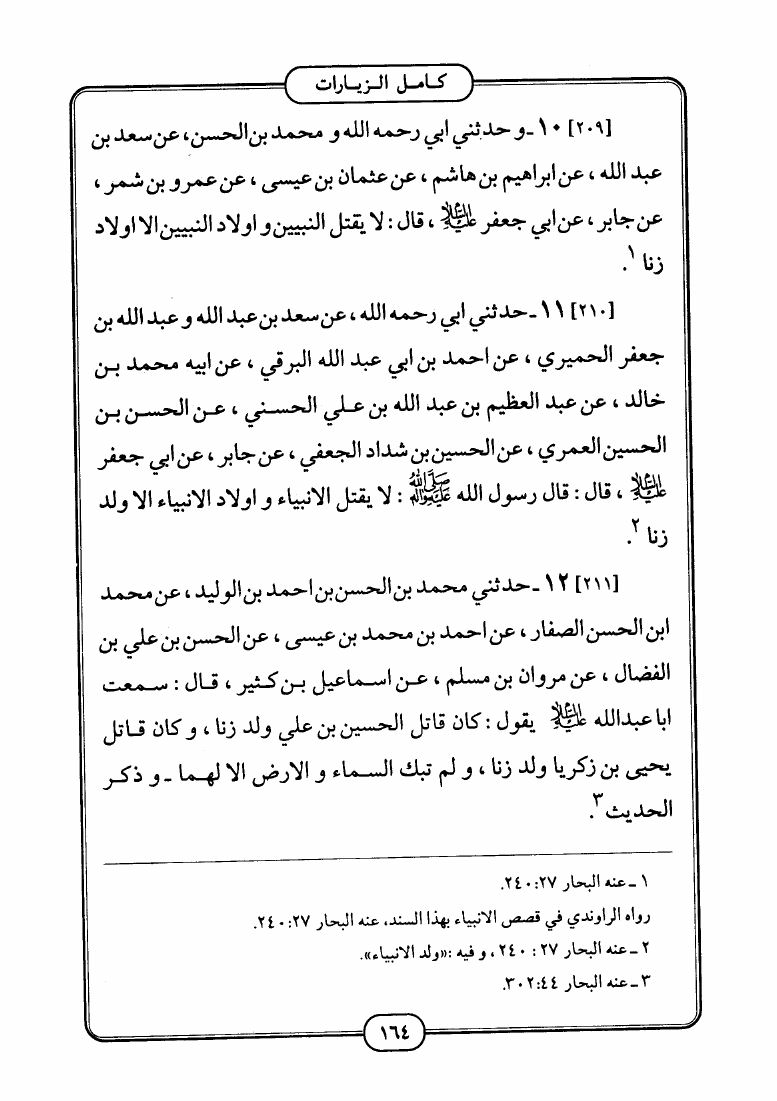 كـامـل الـزيـارات
[٢٠٩] ١٠ ـ و حدثني ابي رحمه الله و محمد بن الحسن، عن سعد بن
عبد الله ، عن ابراهيم بن هاشم ، عن عثمان بن عيسى ، عن عمرو بن شمر ،
عن جابر ، عن ابي جعفر عليه السلام ، قال : لا يقتل النبيين و اولاد النبيين الا اولاد
زنا ١.
[٢١٠] ١١ ـ حدثني ابي رحمه الله ، عن سعد بن عبد الله و عبد الله بن
جعفر الحميري ، عن احمد بن ابي عبد الله البرقي ، عن ابيه محمد بـن
خالد ، عن عبد العظيم بن عبد الله بن عـلي الحسـني ، عـن الحسـن بـن
الحسين العمري ، عن الحسين بن شداد الجعفي ، عن جابر ، عن ابي جعفر
عليه السلام ، قال : قال رسول الله صلى الله عليه وآله : لا يقتل الانبياء و اولاد الانبياء الا ولد
زنا ٢.
[٢١١] ١٢ ـ حدثني محمد بن الحسن بن احمد بن الوليد ، عن محمد
ابن الحسن الصفار ، عن احمد بن محمد بن عيسى ، عن الحسن بن علي بن
الفضال ، عن مروان بن مسلم ، عـن اسـماعيل بـن كـثير ، قـال : سـمعت
ابا عبدالله عليه السلام يقول : كان قاتل الحسين بن علي ولد زنا ، و كان قـاتل
يحيى بن زكريا ولد زنا ، و لم تبك السـماء و الارض الا لهـما ـ و ذكـر
الحديث ٣.
١ ـ عنه البحار ٢٧:٢٤٠.
رواه الراوندي في قصص الانبياء بهذا السند، عنه البحار ٢٧:٢٤٠.
٢ ـ عنه البحار ٢٧ : ٢٤٠ ، و فيه :«ولد الانبياء».
٣ ـ عنه البحار ٤٤:٣٠٢.
١٦٤